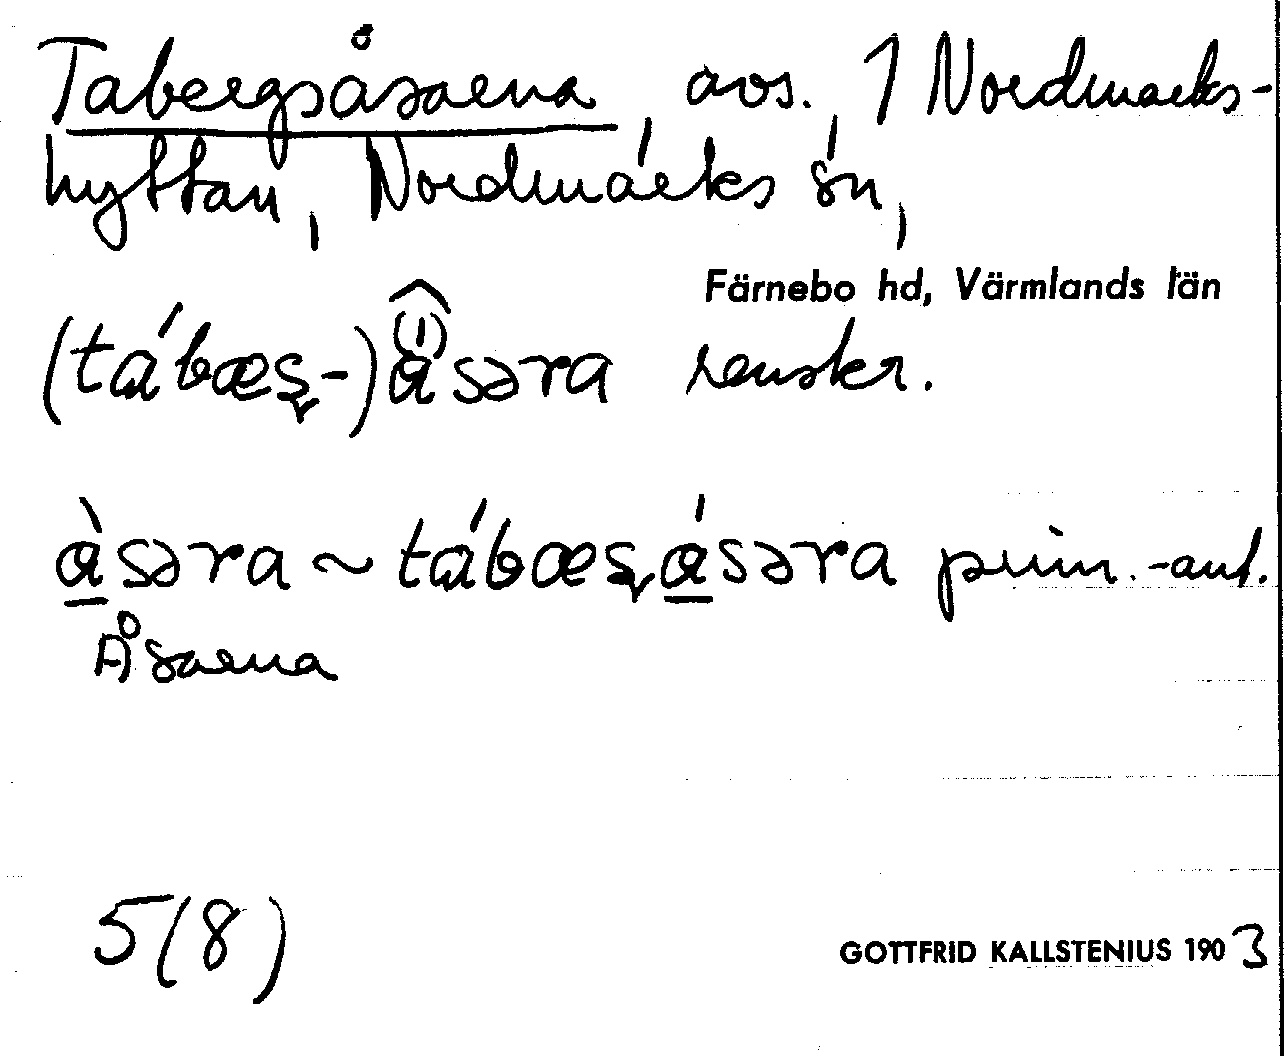 Tabergsåsarna, avs., 1 Nordmarks-
hyttan, Nordmarks sn,
Färnebo hd, Värmlands län
(tábæş-)åsəra renskr.
àsəra ~ tábæşásəra prim.-ant.
Åsarna
5(8)
GOTTFRID KALLSTENIUS 1903